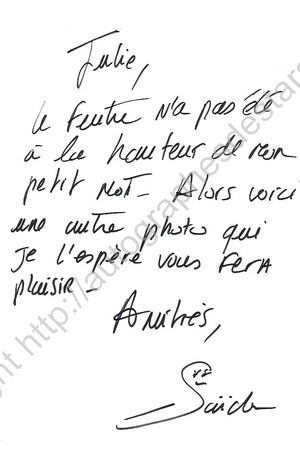 Julie,
le feutre n'a pas été
à la hauteur de mon
petit mot - Alors voici
une autre photo qui
je l'espère vous fera
plaisir -
Amitiés,
ght http://autographesdestars